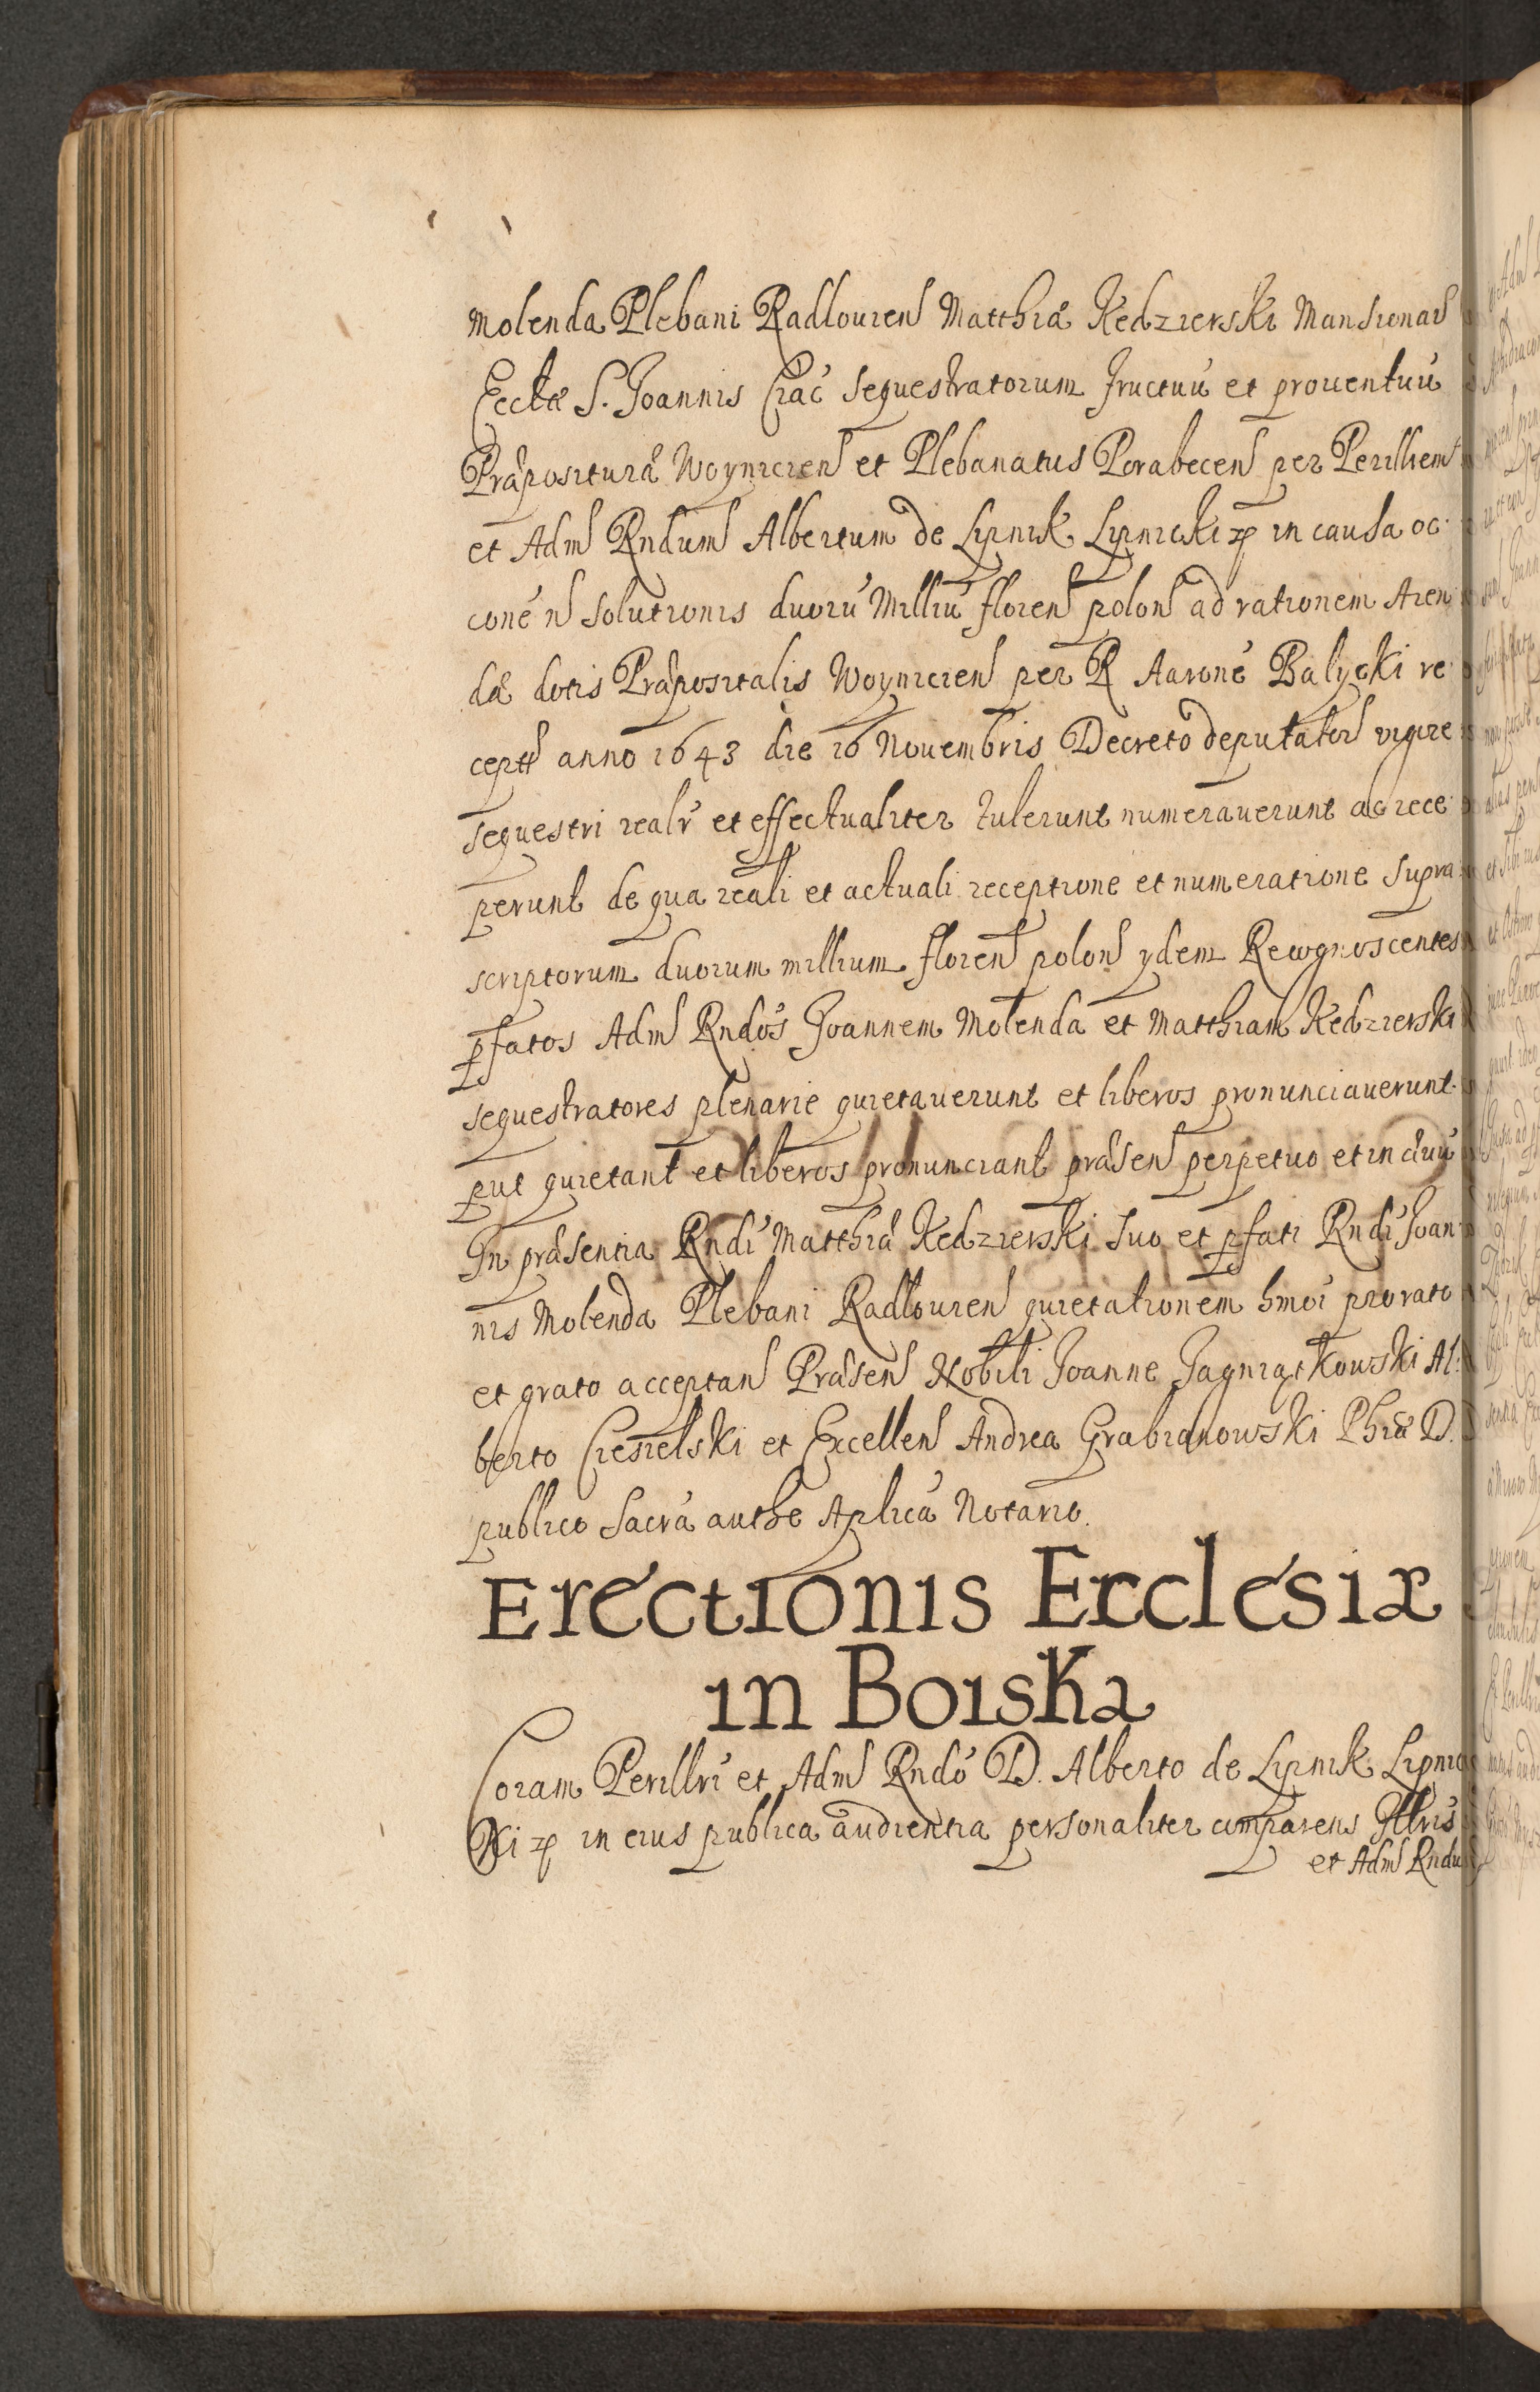 Molenda Plebani Radlouien Matthiæ Kedzierski Mansionar
Eccłæ S. Joannis Crac sequestratorum fructuū et prouentuū
Præposituræ Woynicien et Plebanatus Porabecen per Perillrem
et Adm Rndum Albertum de Lipnik Lipnicki in causa oc-
conē n solutionis duorū Milliū floren polon ad rationem Aren
dæ dotis Præpositalis Woynicien per R Aaronē Balycki re
cept anno 1643 die 16 Nouembris Decreto deputator vigore
sequestri realr et effectualiter tulerunt numerauerunt ac rece
perunt de qua reali et actuali receptione et numeratione supra
scriptorum duorum millium floren polon ydem Recognoscentes
pfatos Adm Rndos Joannem Molenda et Matthiam Kedzierski
sequestratores plenarie quietauerunt et liberos pronunciauerunt
put quietant et liberos pronunciant præsen perpetuo et in æuū
In præsentia Rndi Matthiæ Kedzierski suo et pfati Rndi Joan
nis Molenda Plebani Radłouien quietationem hmoi pro rato
et grato acceptan Præsen Nobili Joanne Jagniątkowski Al-
berto Ciesielski et Excellen Andrea Grabianowski Phiæ D.
publico Sacrā authe Aplicā Notario.
Erectionis Ecclesiæ
in Boiska
Coram Perillri et Adm Rndo D. Alberto de Lipnik Lipnic
Ki in eius publica audientia personaliter comparens Illris
et Adm Rndu